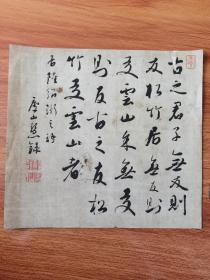 古之君子無友則
友松竹居無友則
友雲山余無友
則友古之友松
竹友雲山者
陸紹珩之
山錄